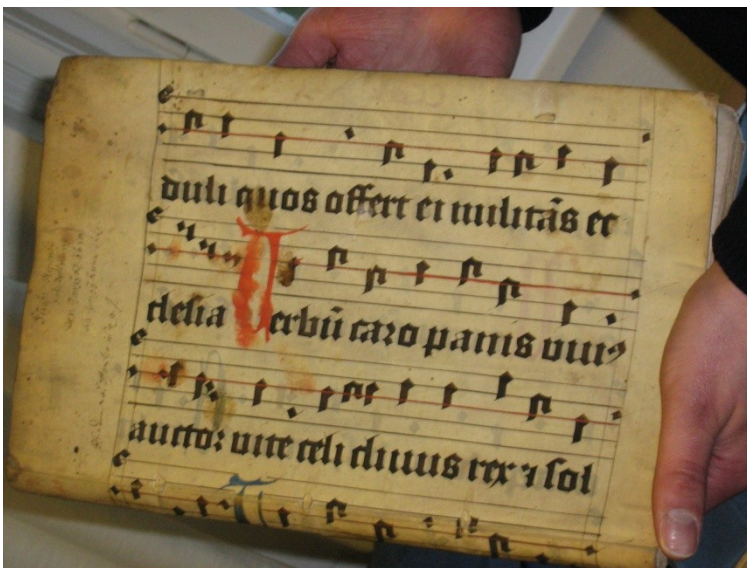 duli quos offert ei militās ec
clesia Verbū caro panis viuꝰ
auctor vite celi cliuus rex ⁊ sol